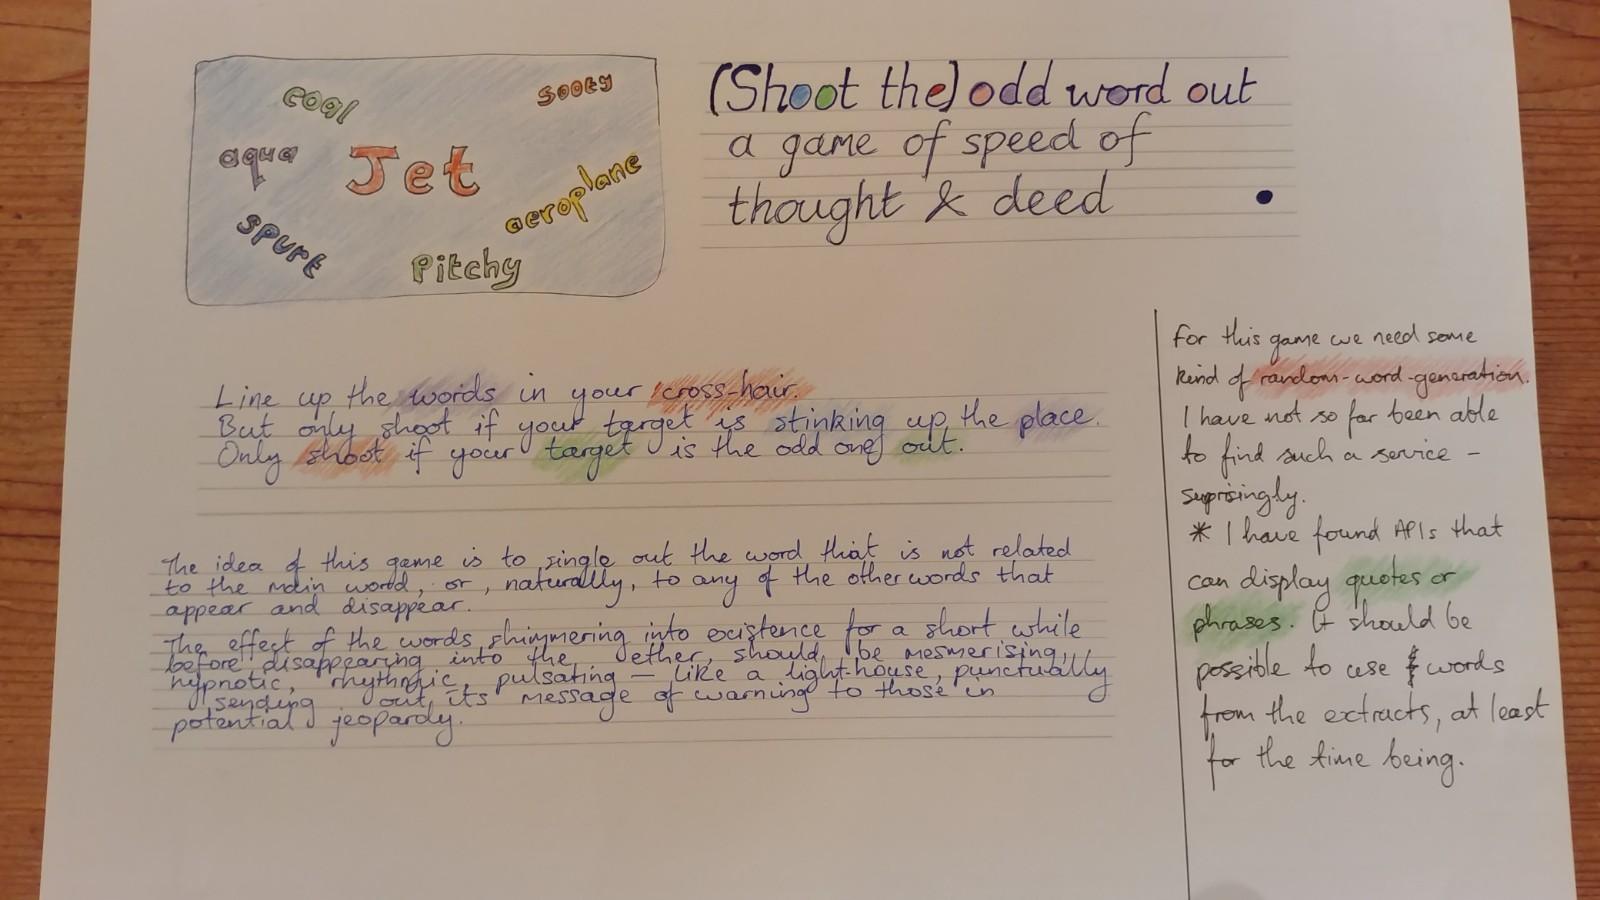 coal
sooty
aqua
Jet
aeroplane
spurt
Pitchy
(Shoot the) odd word out
a game of speed of
thought & deed
Line up the words in your cross-hair.
But only shoot if your target is stinking up the place.
Only shoot if your target is the odd one out.
The idea of this game is to single out the word that is not related
to the main word, or, naturally, to any of the other words that
appear and disappear.
The effect of the words shimmering into existence for a short while
before disappearing into the ether, should be mesmerising,
hypnotic, rhythmic, pulsating — like a light-house, punctually
sending out its message of warning to those in
potential jeopardy.
For this game we need some
kind of random-word-generation.
I have not so far been able
to find such a service -
suprisingly.
* I have found APIs that
can display quotes or
phrases. It should be
possible to use words
from the extracts, at least
for the time being.